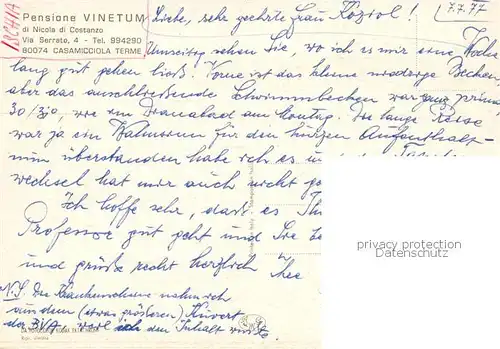 Pensione VINETUM
di Nicola di Costanzo
Via Serrato, 4 - Tel. 994290
80074 CASAMICCIOLA TERME
ISCHIA
7.7.77
Liebe, sehr geehrte Frau Koziol!
Umseitig sehen Sie, wo ich es mir eine Woche
lang gut gehen ließ. Vorne ist das kleine niedrige Becken
aber das anschließende Schwimmbecken war ganz prima,
30/32°, wie im Dianabad am Montag. Die lange Reise
war ja ein Wahnsinn für den kurzen Aufenthalt -
nun überstanden habe ich es
wechsel hat mir auch nicht
Ich hoffe sehr, dass es Ih
Professor gut geht und Sie
und grüße recht herzlich Ihre
privacy protection
Datenschutz
N.S. Die Bankenscheine nahm ich
aus dem (etwas größeren) Kuvert
der BVA, weil ich den Inhalt wusste.